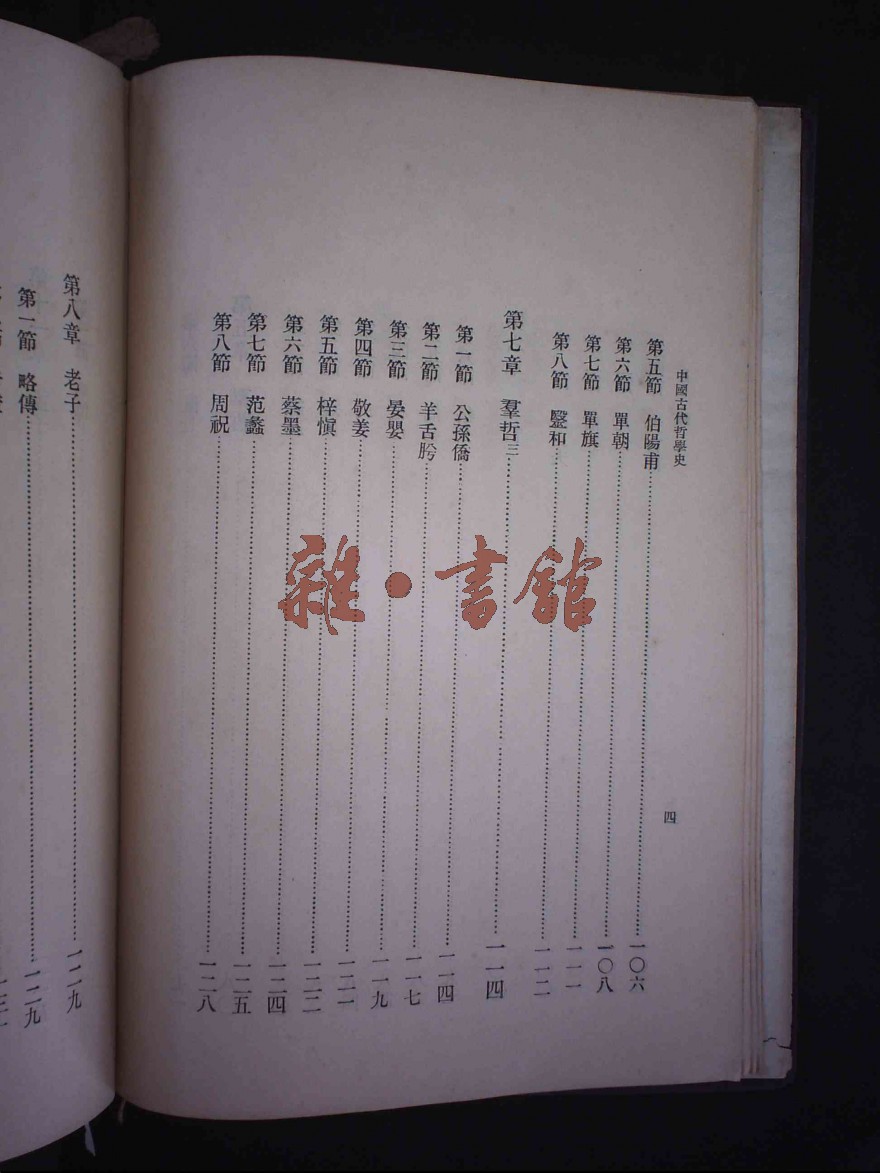 中國古代哲學史
第五節 伯陽甫 一〇六
第六節 單朝 一〇八
第七節 單旗 一一一
第八節 毉和 一一二
第七章 羣哲三 一一四
第一節 公孫僑 一一四
第二節 羊舌肸 一一七
第三節 晏嬰 一一九
第四節 敬姜 一二一
第五節 梓愼 一二二
第六節 蔡墨 一二四
第七節 范蠡 一二五
第八節 周祝 一二八
四
第八章 老子 一二九
第一節 略傳 一二九
雜·書館